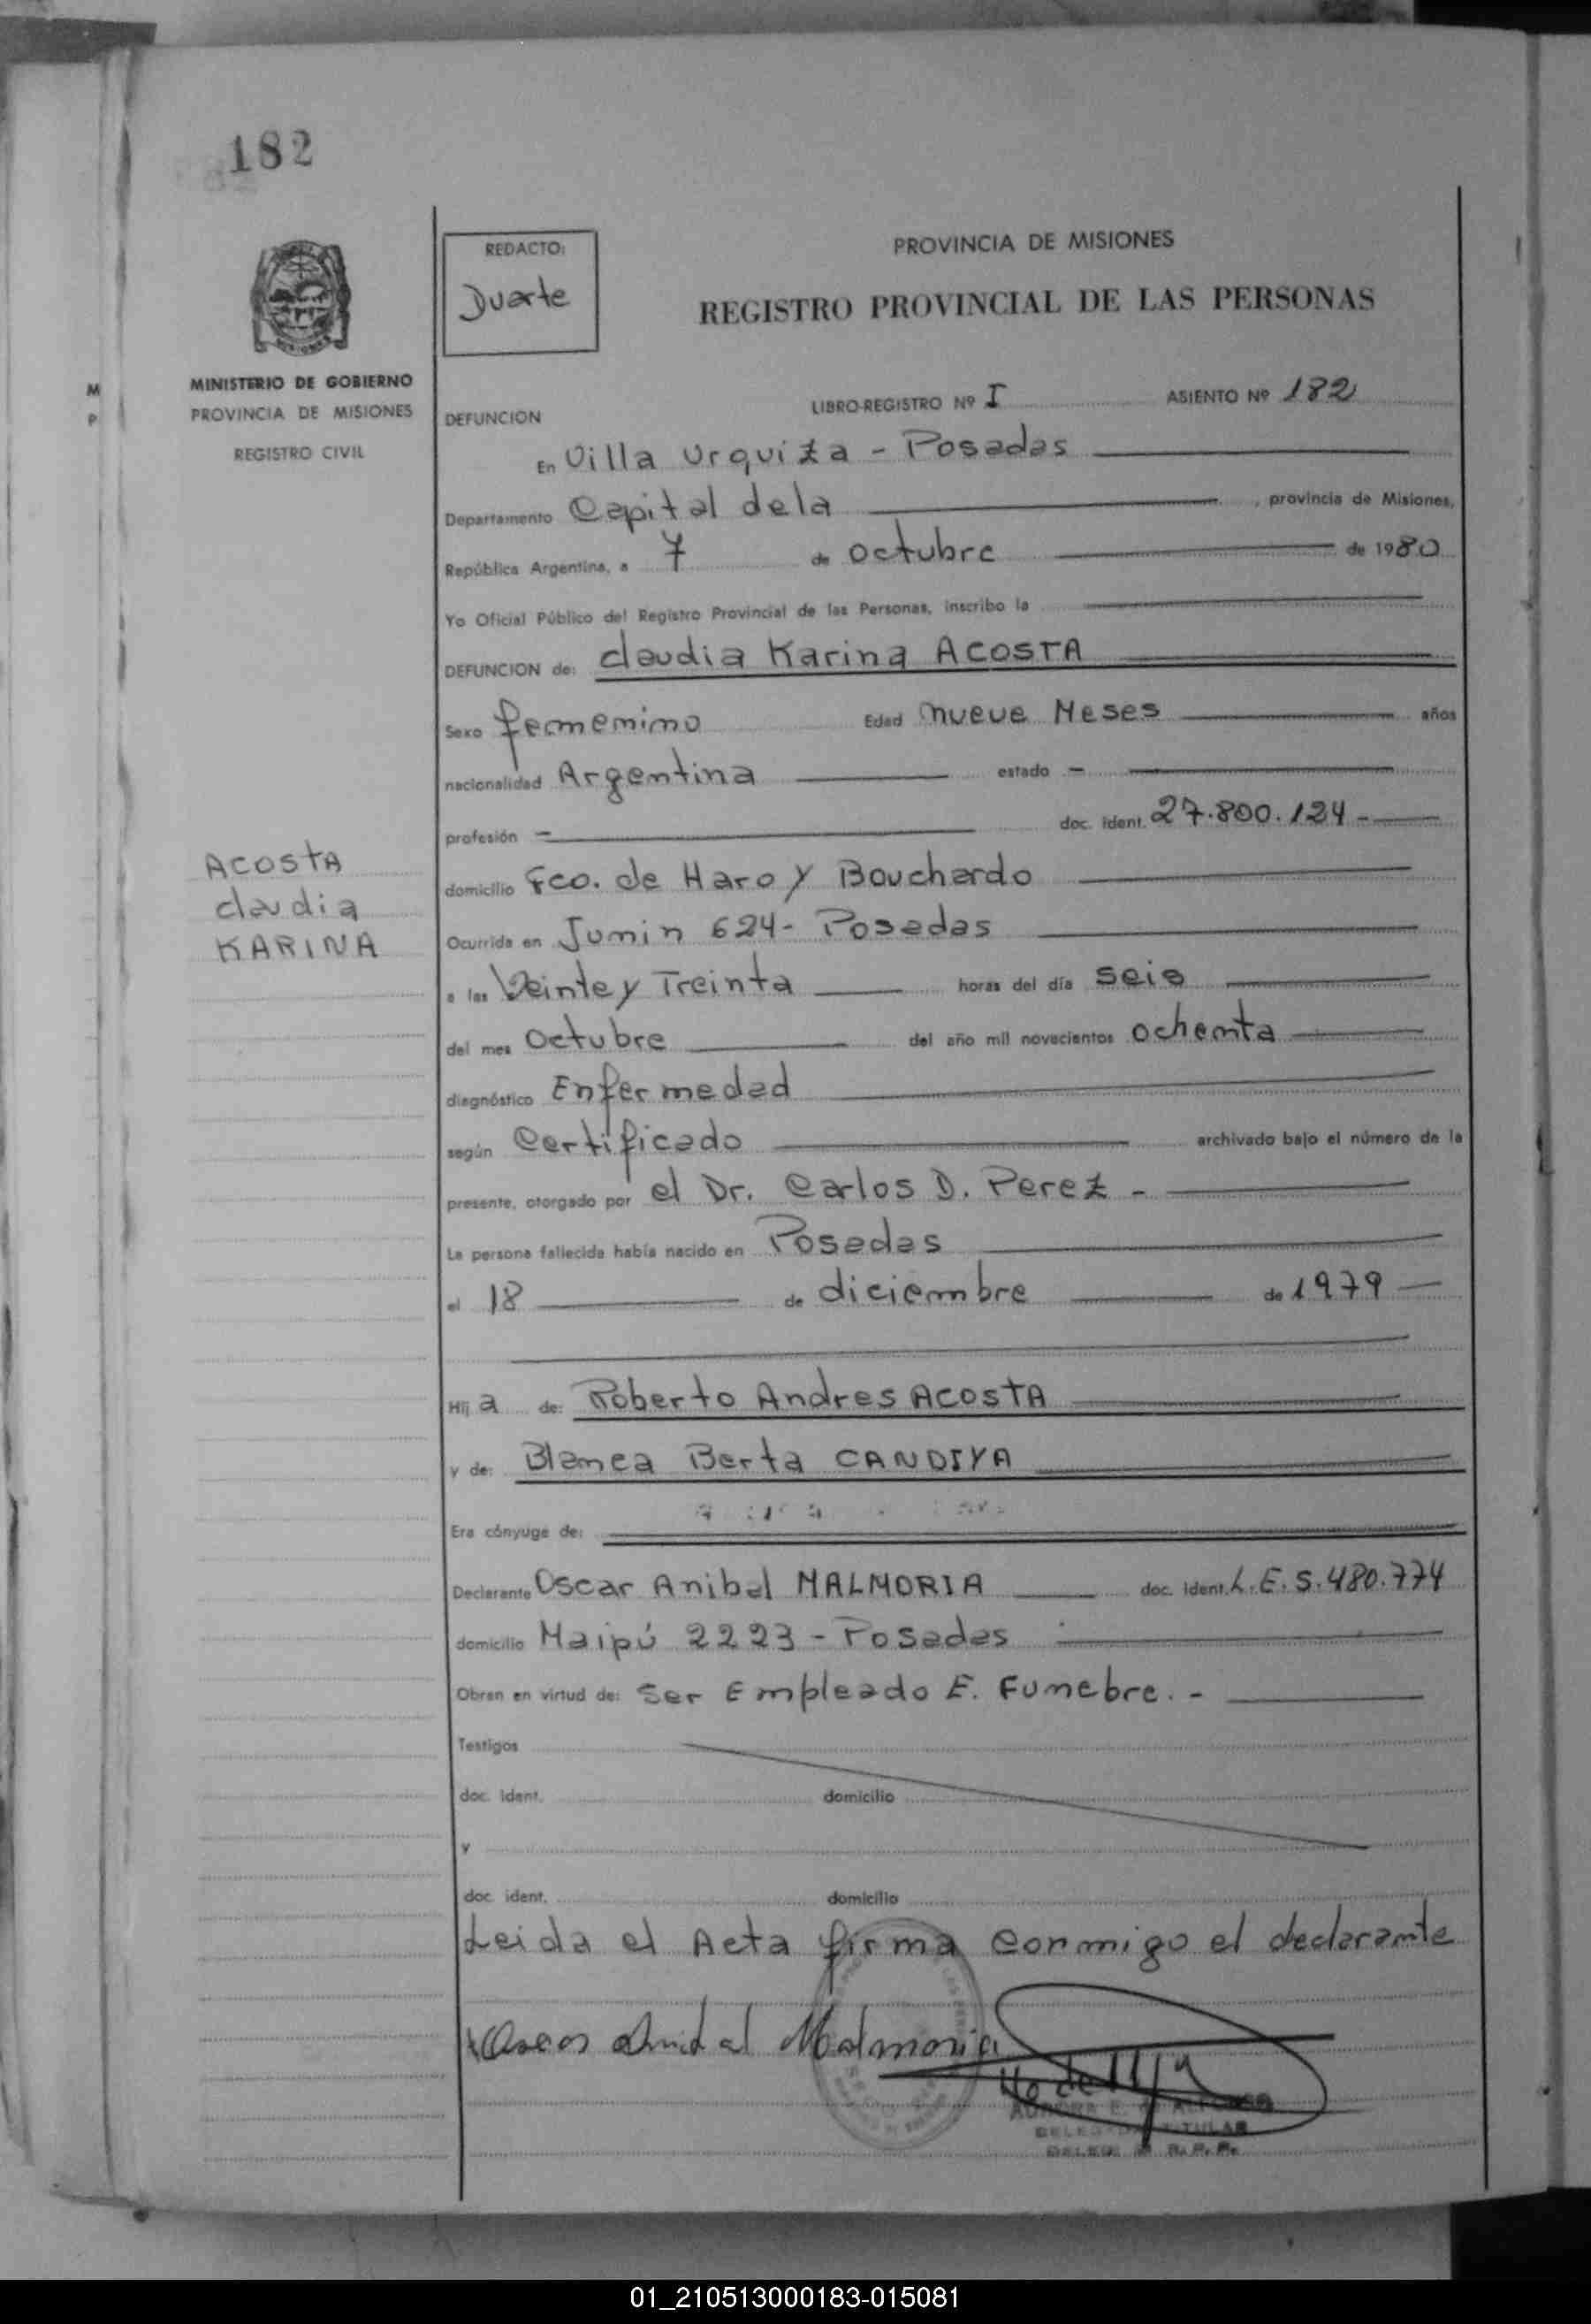 182
REDACTO:
Duarte
PROVINCIA DE MISIONES
REGISTRO PROVINCIAL DE LAS PERSONAS
MINISTERIO DE GOBIERNO
PROVINCIA DE MISIONES
REGISTRO CIVIL
M
P
DEFUNCION
LIBRO-REGISTRO Nº I ASIENTO Nº 182
En Villa Urquiza - Posadas
Departamento Capital de la , provincia de Misiones,
República Argentina, a 7 de octubre de 1980
Yo Oficial Público del Registro Provincial de las Personas, inscribo la
DEFUNCION de: Claudia Karina ACOSTA
Sexo femenino Edad nueve Meses años
nacionalidad Argentina estado -
profesión - doc. ident. 27.800.124 -
ACOSTA
Claudia
KARINA
domicilio Fco. de Haro y Bouchardo
Ocurrida en Junin 624 - Posadas
a las Veinte y Treinta horas del día seis
del mes Octubre del año mil novecientos ochenta
diagnóstico Enfermedad
según Certificado archivado bajo el número de la
presente, otorgado por el Dr. Carlos D. Perez -
La persona fallecida había nacido en Posadas
el 18 de diciembre de 1979
Hij a de: Roberto Andres ACOSTA
y de: Blanca Berta CANDIYA
Era cónyuge de:
Declarante Oscar Anibal MALMORIA doc. ident. L.E. 5.480.774
domicilio Maipú 2223 - Posadas
Obran en virtud de: Ser Empleado E. Funebre. -
Testigos
doc. ident. domicilio
y
doc. ident. domicilio
Leida el Acta firma conmigo el declarante
Oscar Anibal Malmoria
AURORA E.
TITULAR
R. P. P.
01_210513000183-015081